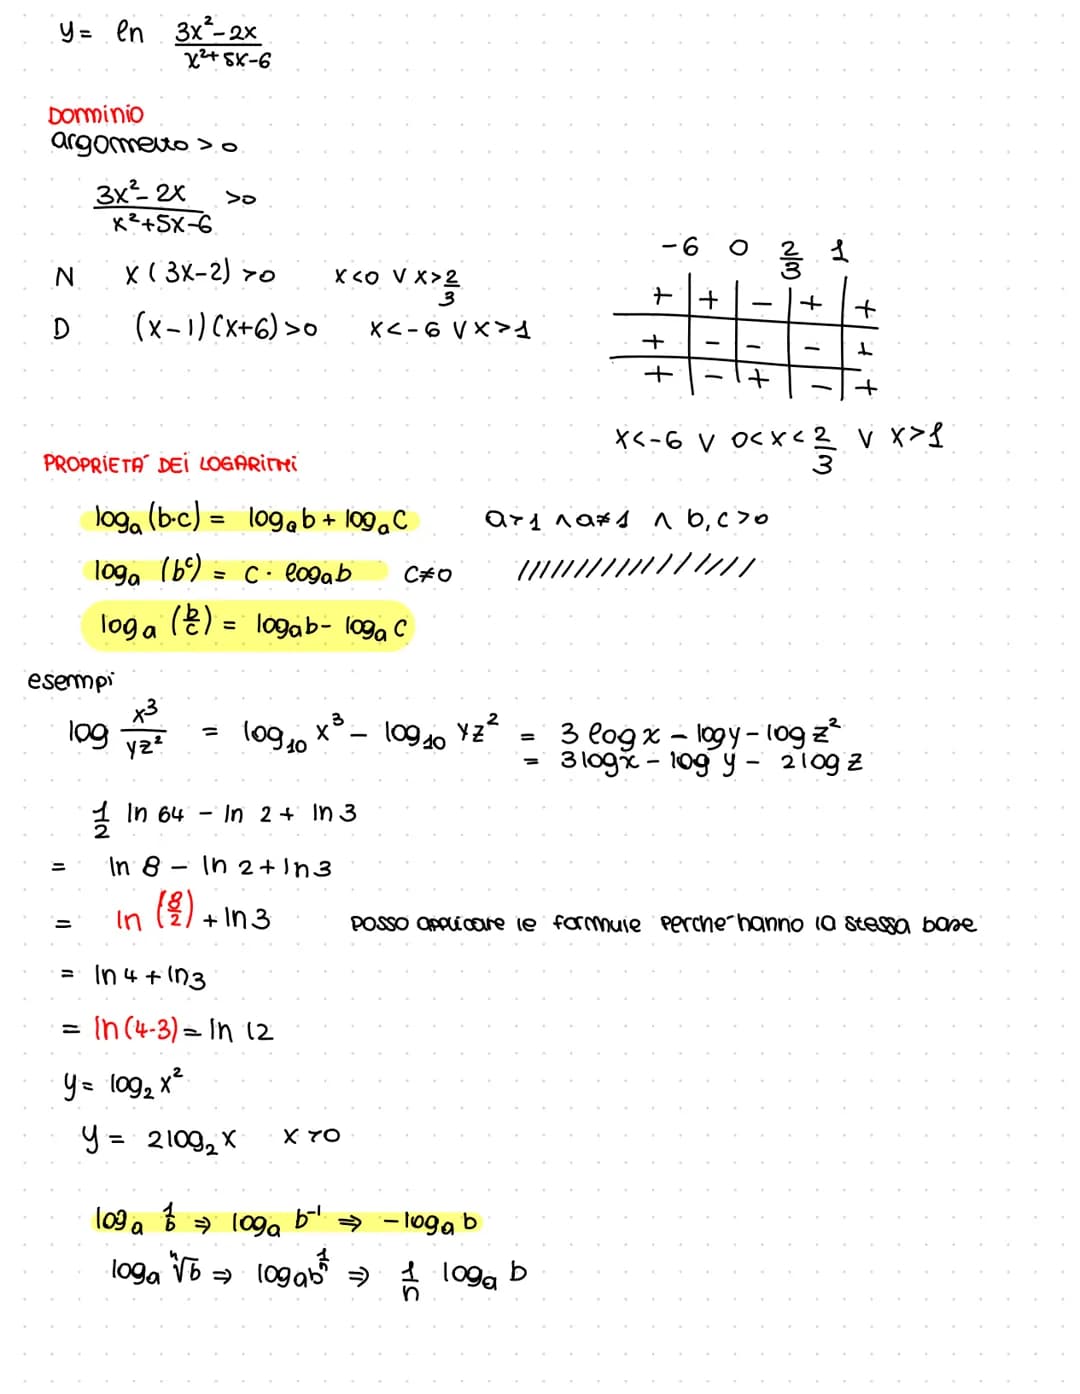 y = ln (3x² - 2x)/(x² + 5x - 6)
Dominio
argomento > 0
(3x² - 2x)/(x² + 5x - 6) > 0
N x(3x-2) > 0 x<0 ∨ x>2/3
D (x-1)(x+6) > 0 x<-6 ∨ x>1
-6 0 2/3 1
+ | + | - | + | +
+ | - | - | - | +
+ | - | + | - | +
x<-6 ∨ 0<x<2/3 ∨ x>1
PROPRIETA' DEI LOGARITMI
logₐ(b·c) = logₐb + logₐc a>1 ∧ a≠1 ∧ b,c>0
logₐ(bᶜ) = c · logₐb c≠0 ////////////////
logₐ(b/c) = logₐb - logₐc
esempi
log x³/yz² = log₁₀ x³ - log₁₀ yz² = 3 log x - log y - log z²
= 3 log x - log y - 2 log z
1/2 ln 64 - ln 2 + ln 3
= ln 8 - ln 2 + ln 3
= ln (8/2) + ln 3 posso applicare le formule perche' hanno la stessa base
= ln 4 + ln 3
= ln(4·3) = ln 12
y = log₂ x²
y = 2log₂ x x>0
logₐ 1/b ⇒ logₐ b⁻¹ ⇒ -logₐ b
logₐ ⁿ√b ⇒ logₐ b^(1/n) ⇒ 1/n logₐ b